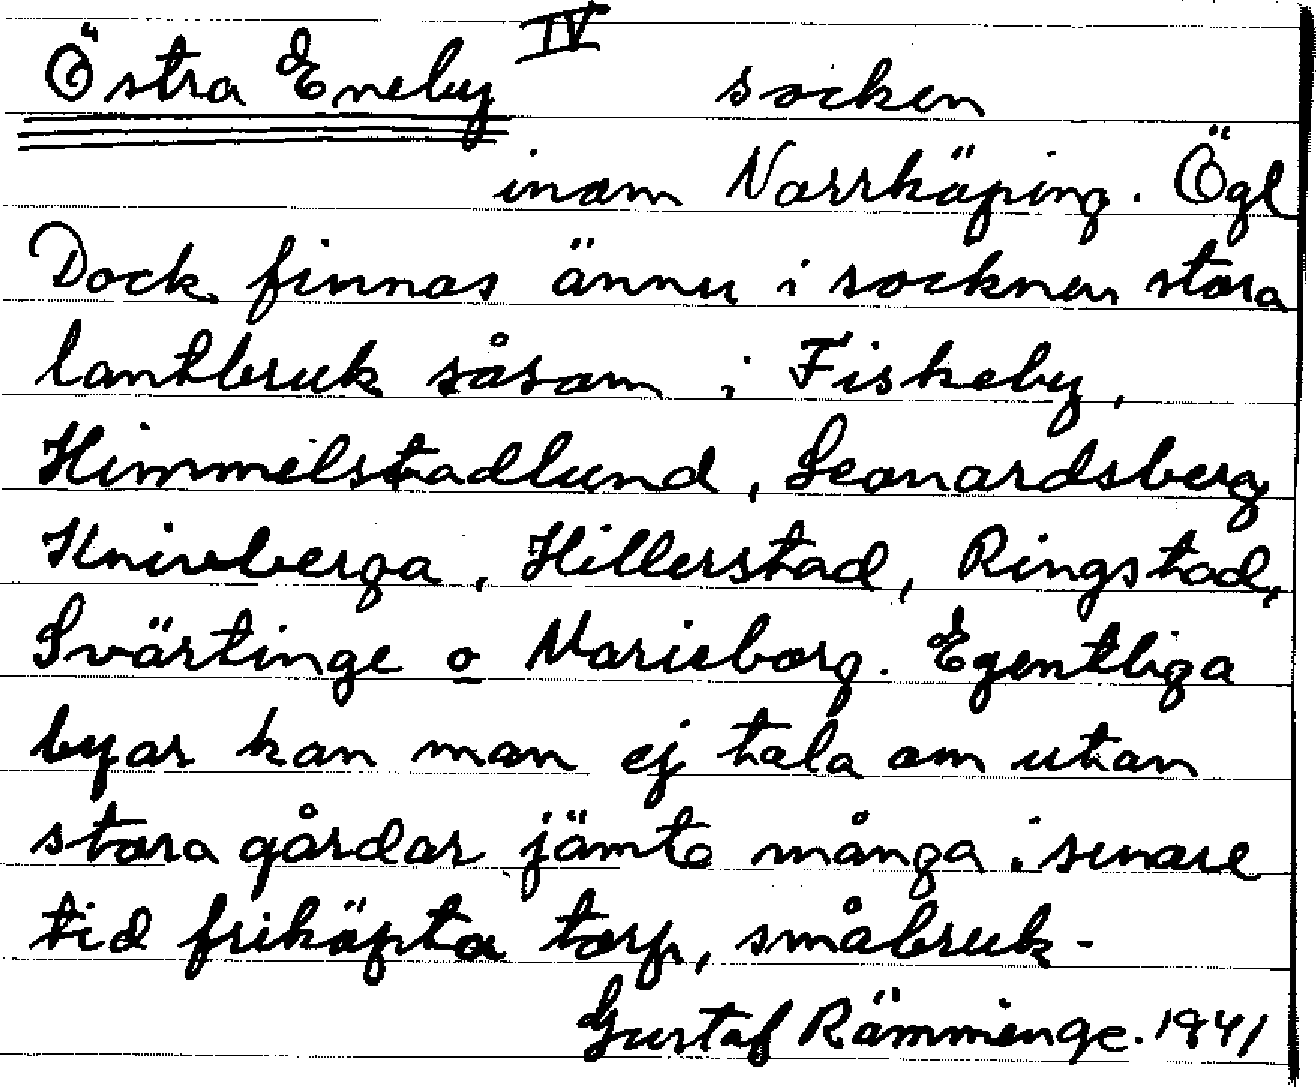 Östra Eneby IV socken
inom Norrköping. Ögl
Dock finnas ännu i socknen stora
lantbruk såsom i Fiskeby,
Himmelstadlund, Leonardsberg
Knivberga, Hillerstad, Ringstad,
Svärtinge o Marieborg. Egentliga
byar kan man ej tala om utan
stora gårdar jämte många i senare
tid friköpta torp, småbruk -
Gustaf Rämminge. 1941